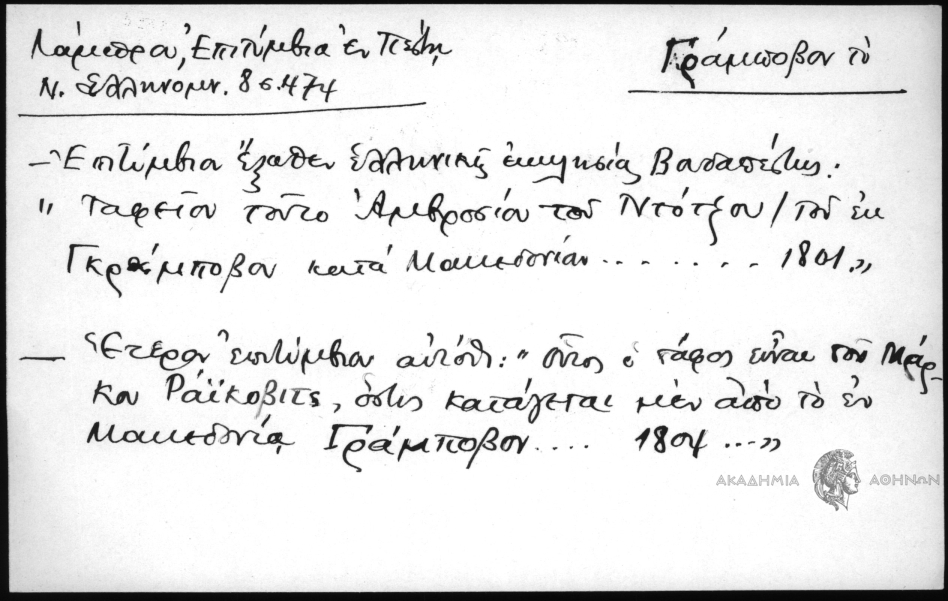 Λάμπρου, Ἐπιτύμβια ἐν Πέστῃ,
Ν. Ἑλληνομν. 8 σ. 474
Γράμποβον τὸ
— Ἐπιτύμβια ἔξωθεν ἑλληνικῆς ἐκκλησίας Βουδαπέστης:
" Ταφεῖον τοῦτο Ἀμβροσίου τοῦ Ντότζου / τοῦ ἐκ
Γκράμποβον κατὰ Μακεδονίαν . . . . . . . 1801."
— Ἕτερον ἐπιτύμβιον αὐτόθι: " οὗτος ὁ τάφος εἶναι τοῦ Μάρ-
κου Ράϊκοβιτς, ὅστις κατάγεται μὲν ἀπὸ τὸ ἐν
Μακεδονίᾳ Γράμποβον.... 1804 ..."
ΑΚΑΔΗΜΙΑ ΑΘΗΝΩΝ